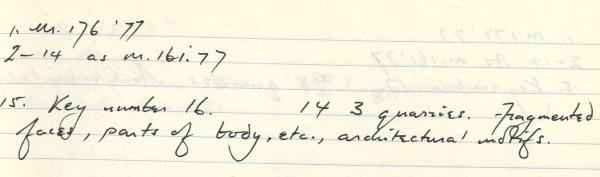 1. M.176.'77
2-14 as M.161.'77
15. Key number 16. 14 3 quarries. Fragmented
faces, parts of body, etc., architectural motifs.